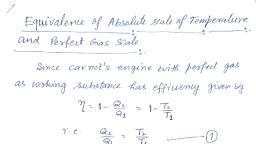 Equivalence of Absolute scale of Temperature
and Perfect Gas Scale
Since carnot's engine with perfect gas
as working substance has efficiency given by
η = 1 - Q₂/Q₁ = 1 - T₂/T₁
i.e. Q₂/Q₁ = T₂/T₁ — ①